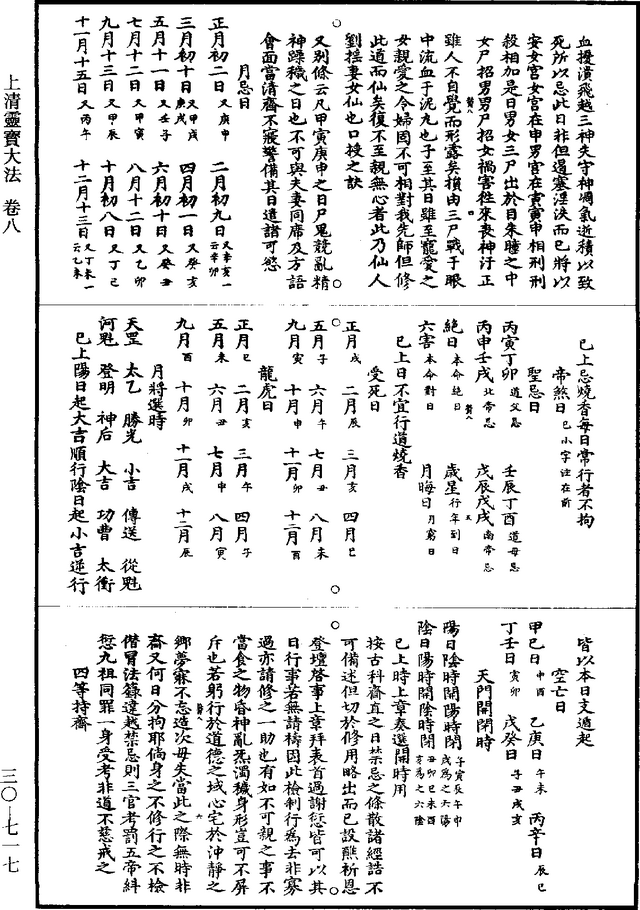 血擾潰飛越三神失守神凋氣逝積以致
死所以忌此日非但遏塞淫決而已將以
安女宮女宮在申男宮在寅寅申相刑刑
殺相加是日男女三尸出於目朱瞳之中
女尸招男男尸招女禍害往來喪神汙正
雖人不自覺而形露矣損由三尸戰于眼
中流血于泥丸也子至其日雖至寵愛之
女親愛之令婦固不可相對我先師但修
此道而仙矣復不至親無心者此乃仙人
劉搖妻女仙也口授之訣
又別條云凡甲寅庚申之日尸鬼競亂精
神躁穢之日也不可與夫妻同席及方語
會面當清齋不寢警備其日遣諸可慾
月忌日
正月初二日又庚申 二月初九日又辛亥一云辛卯
三月初十日又甲戌庚戌 四月初一日又癸亥
五月十一日又壬子 六月初十日又癸丑
七月十二日又甲寅 八月十二日又乙卯
九月十三日又甲辰 十月初八日又丁巳
十一月十五日又丙午 十二月十三日又丁未一云乙未
已上忌燒香每日常行者不拘
帝煞日已小字注在前
聖忌日
丙寅丁卯道父忌 壬辰丁酉道母忌
丙申壬戌北帝忌 戊辰戊戌南帝忌
絕日本命絕日 歲星行年到日
六害本命對日 月晦日月窮日
已上日不宜行道燒香
受死日
正月戌 二月辰 三月亥 四月巳
五月子 六月午 七月丑 八月未
九月寅 十月申 十一月卯 十二月酉
龍虎日
正月巳 二月亥 三月午 四月子
五月未 六月丑 七月申 八月寅
九月酉 十月卯 十一月戌 十二月辰
月將選時
天罡 太乙 勝光 小吉 傳送 從魁
河魁 登明 神后 大吉 功曹 太衝
已上陽日起大吉順行陰日起小吉逆行
皆以本日支遁起
空亡日
甲己日申酉 乙庚日午未 丙辛日辰巳
丁壬日寅卯 戊癸日子丑戌亥
天門開閉時
陽日陰時開陽時閉子寅辰午申戌為之六陽
陰日陽時開陰時閉丑卯巳未酉亥為之六陰
已上時上章奏選開時用
按古科齋直之日禁忌之條散諸經誥不
可備述但切於修用略出而已設醮祈恩
登壇啓事上章拜表首過謝愆皆可以其
日行事若無請禱因此檢制行爲去非寡
過亦請修之一助也有如不可親之事不
當食之物昏神亂炁濁穢身形豈可不屏
斥也若躬行於道德之域心宅於沖靜之
鄉夢寐不忘造次毋失當此之際無時非
齋又何日分拘耶倘身之不修行之不檢
僭冒法籙違越禁忌則三官考罰五帝糾
愆九祖同罪一身受考非道不慈戒之
四等持齋
上清靈寶大法 卷八
三〇-七一七